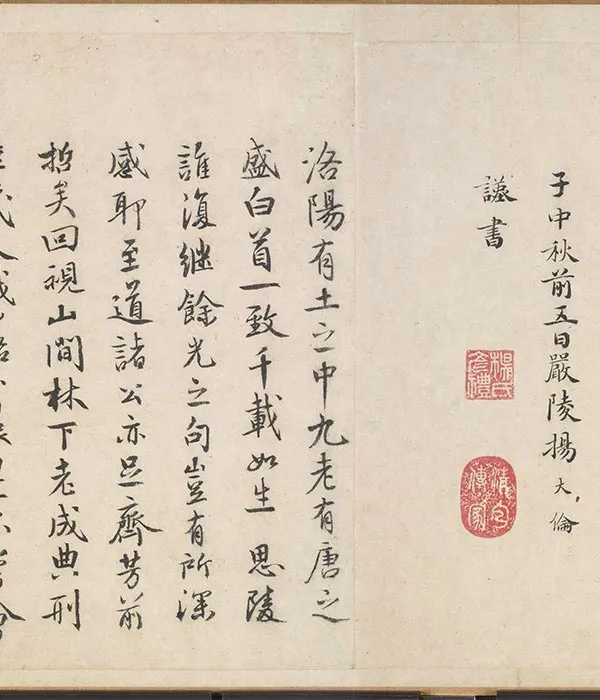 子中秋前五日嚴陵揚大倫
謹書
楊氏彥禮
清白傳家
洛陽有土之中九老有唐之
盛白首一致千載如生思陵
誰復継餘光之句豈有所深
感耶至道諸公亦足齊芳前
哲矣回視山間林下老成典刑